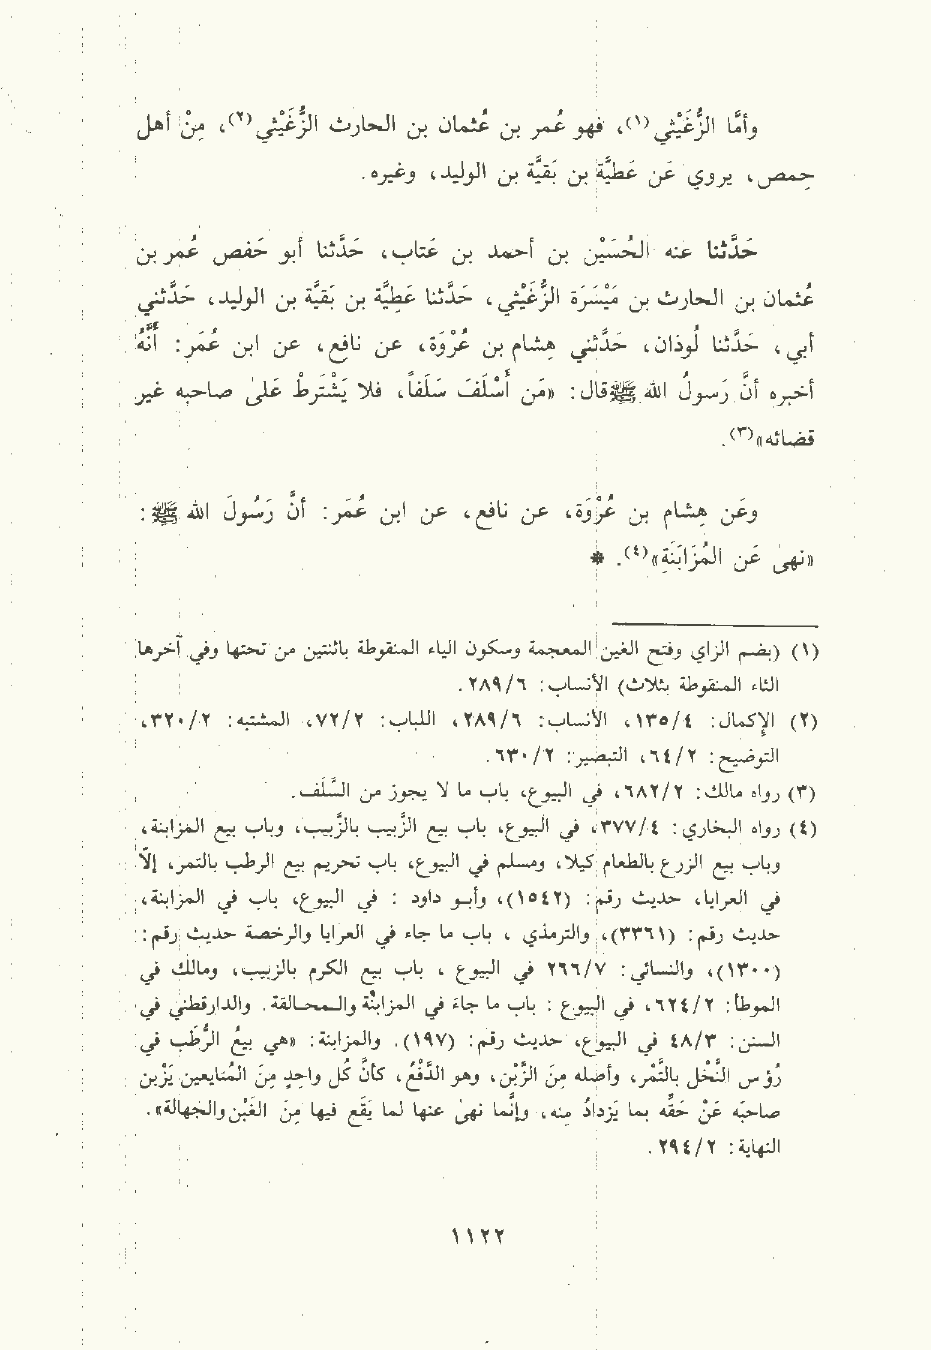 وأمَّا الزُّغَيْثي(١)، فهو عُمر بن عُثمان بن الحارث الزُّغَيْثي(٢)، مِنْ أهل
حِمص، يروي عَن عَطيَّة بن بَقيَّة بن الوليد، وغيره.
حَدَّثنا عنه الحُسَيْن بن أحمد بن عَتاب، حَدَّثنا أبو حَفص عُمر بن
عُثمان بن الحارث بن مَيْسَرَة الزُّغَيْثي، حَدَّثنا عَطِيَّة بن بَقيَّة بن الوليد، حَدَّثني
أبي، حَدَّثنا لُوذان، حَدَّثني هِشام بن عُرْوَة، عن نافع، عن ابن عُمَر: أَنَّهُ
أخبره أنَّ رَسولُ الله ﷺ قال: «مَن أَسْلَفَ سَلَفاً، فلا يَشْتَرطْ عَلىٰ صاحبه غير
قضائه»(٣).
وعَن هِشام بن عُرْوَة، عن نافع، عن ابن عُمَر: أنَّ رَسُولَ الله ﷺ:
«نهىٰ عَن المُزَابَنَة»(٤). *
(١) (بضم الزاي وفتح الغين المعجمة وسكون الياء المنقوطة باثنتين من تحتها وفي آخرها
الثاء المنقوطة بثلاث) الأنساب: ٢٨٩/٦.
(٢) الإكمال: ١٣٥/٤، الأنساب: ٢٨٩/٦، اللباب: ٧٢/٢، المشتبه: ٣٢٠/٢،
التوضيح: ٦٤/٢، التبصير: ٦٣٠/٢.
(٣) رواه مالك: ٦٨٢/٢، في البيوع، باب ما لا يجوز من السَّلَف.
(٤) رواه البخاري: ٣٧٧/٤، في البيوع، باب بيع الزَّبيب بالزَّبيب، وباب بيع المزابنة،
وباب بيع الزرع بالطعام كيلا، ومسلم في البيوع، باب تحريم بيع الرطب بالتمر، إلاَّ
في العرايا، حديث رقم: (١٥٤٢)، وأبو داود : في البيوع، باب في المزابنة،
حديث رقم: (٣٣٦١)، والترمذي ، باب ما جاء في العرايا والرخصة حديث رقم:
(١٣٠٠)، والنسائي: ٢٦٦/٧ في البيوع ، باب بيع الكرم بالزبيب، ومالك في
الموطأ: ٦٢٤/٢، في البيوع : باب ما جاءَ في المزابنة والمحاقلة. والدارقطني في
السنن: ٤٨/٣ في البيوع، حديث رقم: (١٩٧). والمزابنة: «هي بَيعُ الرُّطَب في
رُؤس النَّخل بالتَّمْر، وأصله مِنَ الزَّبْن، وهو الدَّفْعُ، كأنَّ كُل واحِدٍ مِنَ المُتبايعين يَزْبن
صاحبَه عَنْ حَقَّه بما يَزدادُ منه، وإنَّما نهىٰ عنها لما يَقَع فيها مِنَ الغَبْن والجَهالة».
النهاية: ٢٩٤/٢.
١١٢٢